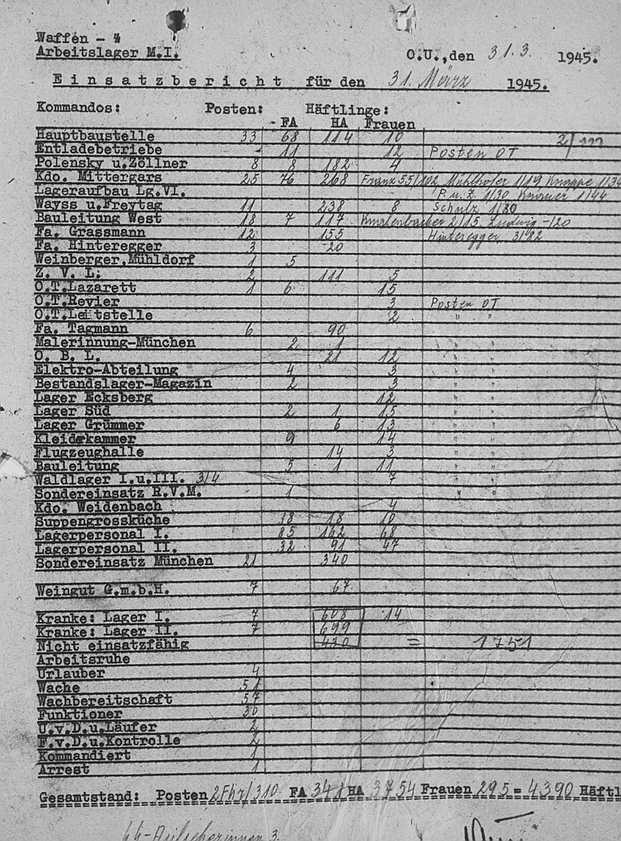 Waffen - ᛋᛋ
Arbeitslager M.I.
O.U.,den 31.3. 1945.
Einsatzbericht für den 31. März 1945.
Kommandos: Posten: Häftlinge:
FA HA Frauen
Hauptbaustelle 33 68 114 10
Entladebetriebe - 11 12 Posten OT
Polensky u.Zöllner 8 8 182 4
Kdo. Mittergars 25 76 268 Franz 55/102 Mühlhofer 1/19 Knappe 1/34
Lageraufbau Lg.VI. P.u.Z. 1/30 1/44
Wayss u.Freytag 11 238 8 Schulz 1/30
Bauleitung West 18 7 117 2/15 Ludwig -/20
Fa. Grassmann 12 155 Hinteregger 3/22
Fa. Hinteregger 3 20
Weinberger,Mühldorf 1 5
Z. V. L. 2 111 5
O.T.Lazarett 1 6 15
O.T.Revier 3 Posten OT
O.T.Leitstelle 2 " "
Fa. Tagmann 6 90
Malerinnung-München 2 1
O. B. L. 21 12
Elektro-Abteilung 4 3
Bestandslager-Magazin 2 3
Lager Ecksberg 12
Lager Süd 2 1 15
Lager Grümmer 6 13
Kleiderkammer 9 14
Flugzeughalle 14 3
Bauleitung 5 1 11
Waldlager I.u.III. 3/4 7
Sondereinsatz R.V.M. 1
Kdo. Weidenbach 4
Suppengrossküche 18 18 10
Lagerpersonal I. 85 162 68
Lagerpersonal II. 32 91 47
Sondereinsatz München 21 340
Weingut G.m.b.H. 7 67
Kranke: Lager I. 7 608 14
Kranke: Lager II. 7 699
Nicht einsatzfähig 430 = 1751
Arbeitsruhe
Urlauber 4
Wache 51
Wachbereitschaft 57
Funktioner 30
U.v.D.u.Läufer 2
F.v.D.u.Kontrolle
Kommandiert
Arrest 1
Gesamtstand: Posten 2Fhr/310 FA 341 HA 3754 Frauen 295 = 4390 Häftl